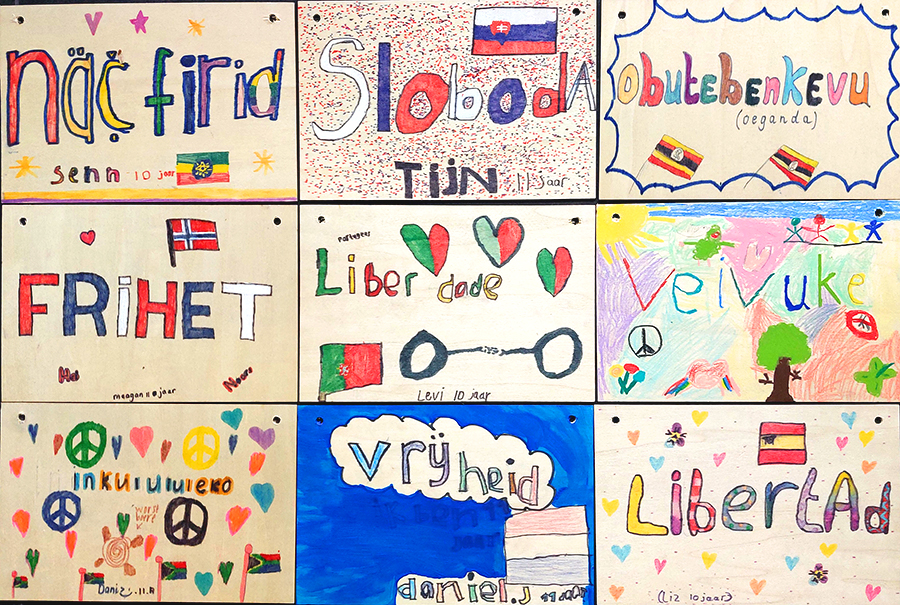 näč firid
senn 10 jaar
SlobodA
TiJN 11 jaar
Obutebenkevu
(oeganda)
FRiHET
meagan 10 jaar
Portugees
Liber
dade
Levi 10 jaar
Veivuke
inkululueko
Daniz
vrijheid
daniel.j
LibertAd
(Liz 10 jaar)